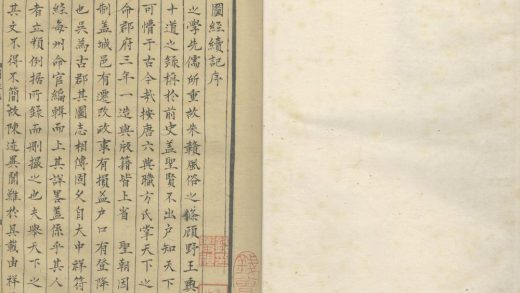 圖經續記序
之學先儒所重故朱贛風俗之條顧野王輿
十道之錄稱於前史盖聖賢不出戶知天下
可懵于古今哉按唐六典職方氏掌天下之
命郡府三年一造與版籍皆上省 聖朝因
制盖城邑有遷改政事有損益戶口有登降
也吳為古郡其圖志相傳固久自大中祥符
經每州命官編輯而上其詳畧盖係乎其人
者立類例據所錄而刪撮之也夫舉天下之
其文不得不簡故陳迹異聞難於具載由祥